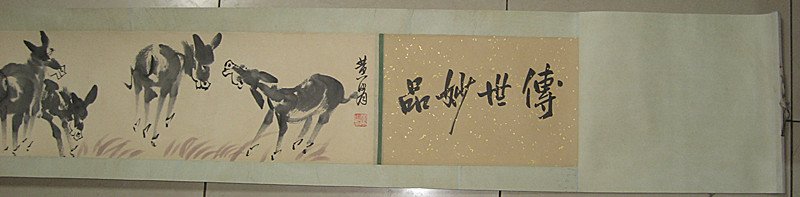 傳世妙品
黄胄